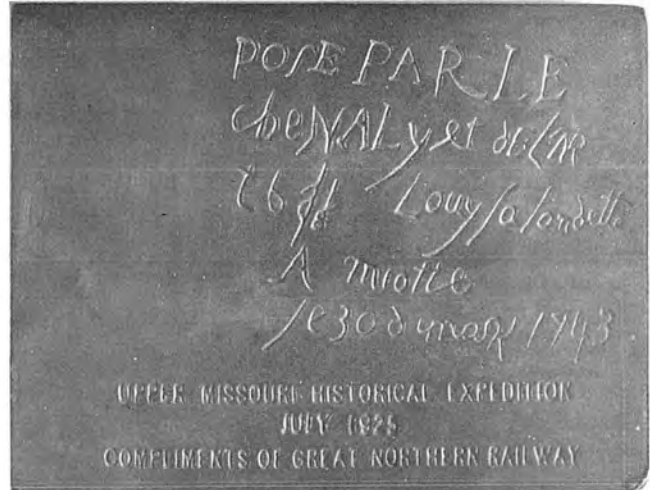 POSE PAR LE
cheVALyet de
t b st Louy la londette
A miotte
le 30 de mars 1743
UPPER MISSOURI HISTORICAL EXPEDITION
JULY 1925
COMPLIMENTS OF GREAT NORTHERN RAILWAY